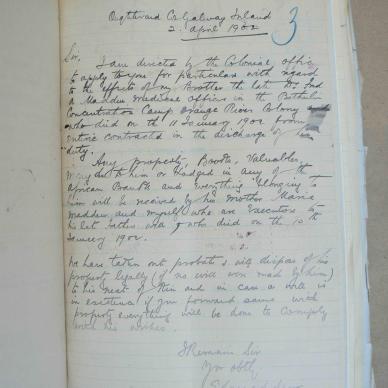 Co Galway Ireland
2 April 1902
3
Sir,
I am directed by the Colonial office
to apply to you for particulars with regard
to the effects of my Brother the late Dr
Madden Medical Officer in the Bethulie
Concentration Camp Orange River Colony
who died on the 11 January 1902 from
enteric contracted in the discharge of his
duty.
Any property, Books, Valuables,
due to him or lodged in any of the
African Banks and everything belonging to
him will be received by his Mother Maria
Madden, and myself who are Executors to
his late Father who died on the 10th
January 1902.
We have taken out probate & will dispose of his
property legally (if no will was made by him)
to his next of Kin and in case a will is
in existence if you forward same with
property everything will be done to comply
with his wishes.
I Remain Sir
Your obdt